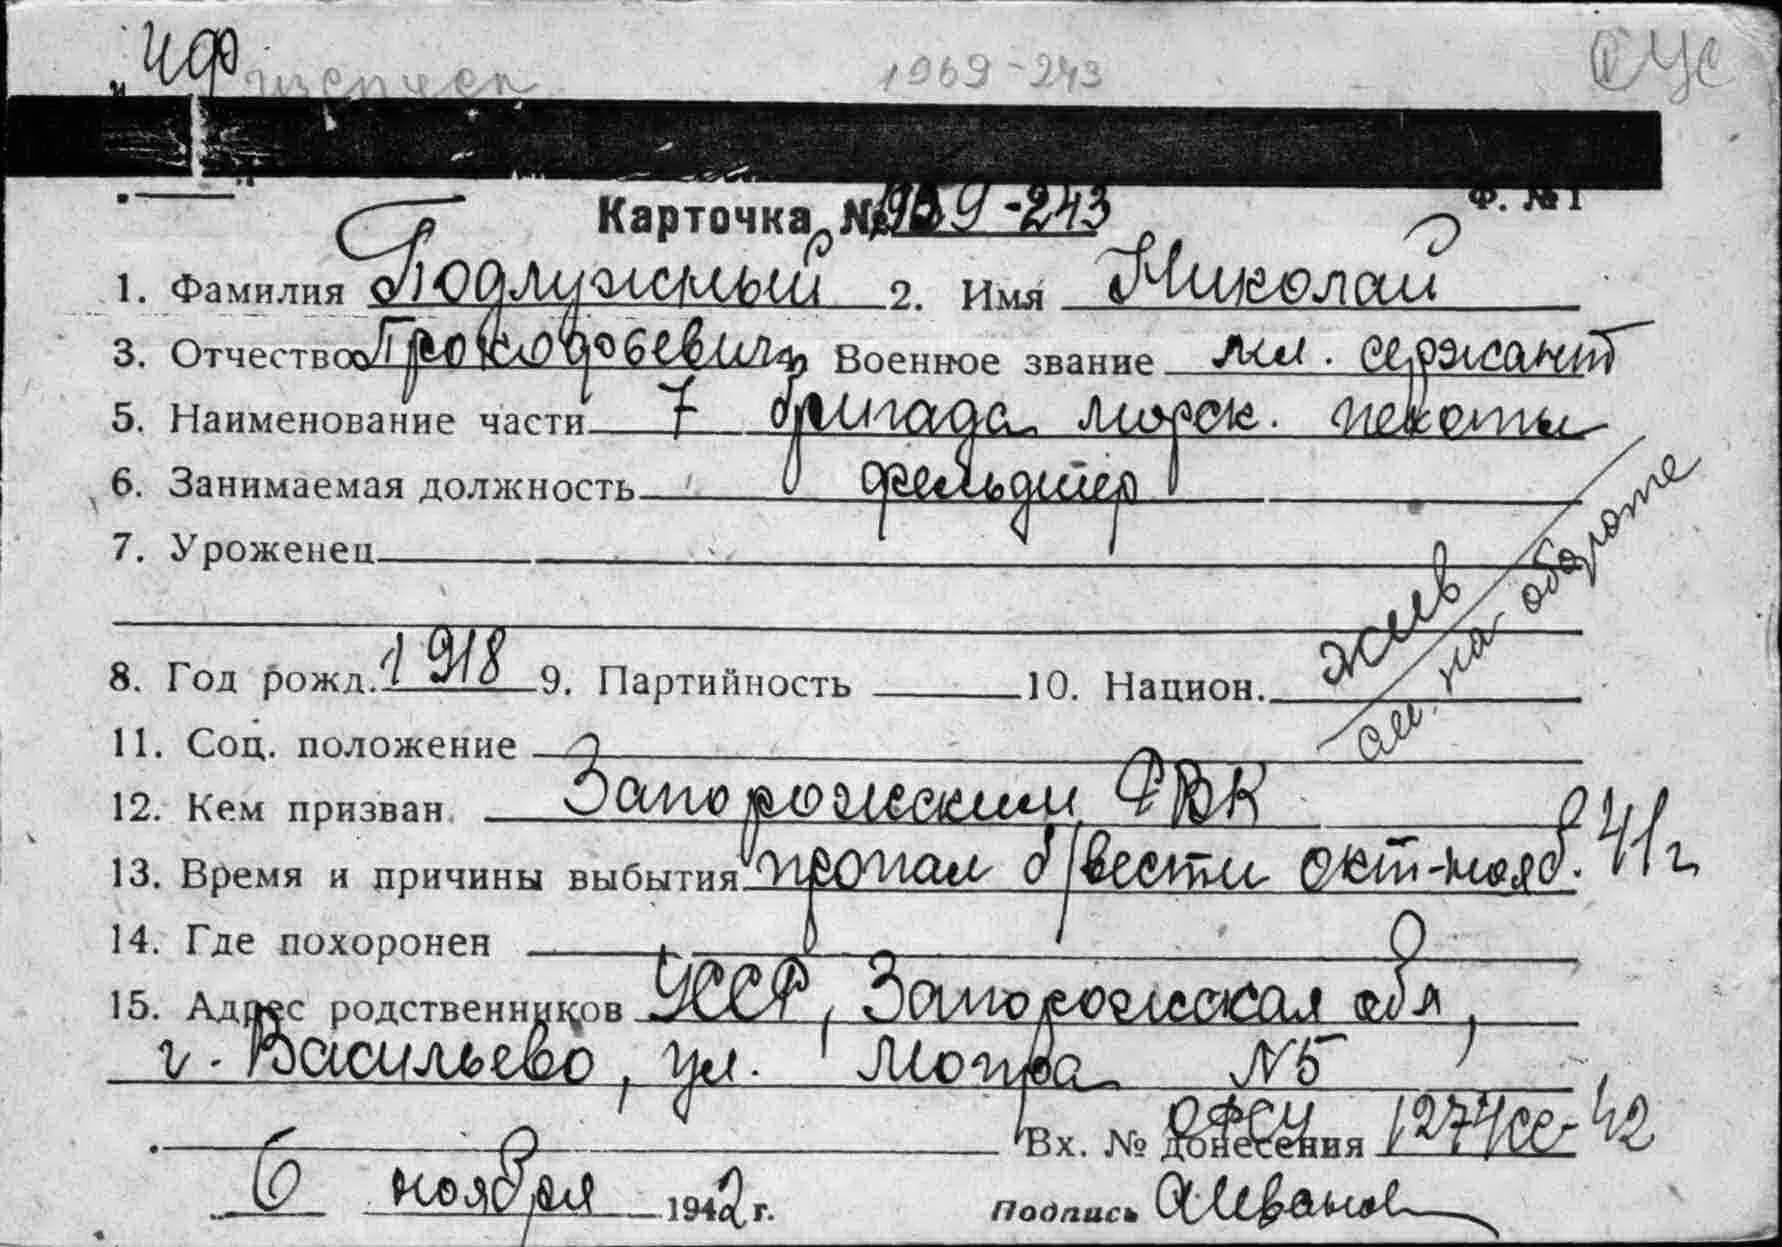 ЧФ
1969-243
Ф. №1
Карточка № 1969-243
1. Фамилия Подлужный 2. Имя Николай
3. Отчество Прокофьевич Военное звание мл. сержант
5. Наименование части 7 бригада морск. пехоты
6. Занимаемая должность фельдшер
7. Уроженец
жив
см. на обороте
8. Год рожд. 1918 9. Партийность 10. Национ.
11. Соц. положение
12. Кем призван Запорожским РВК
13. Время и причины выбытия пропал б/вести окт-нояб. 41 г
14. Где похоронен
15. Адрес родственников УССР, Запорожская обл,
г. Васильево, ул. Мопра N5
Вх. № донесения 1274сс-42
6 ноября 1942 г.
Подпись АИванов